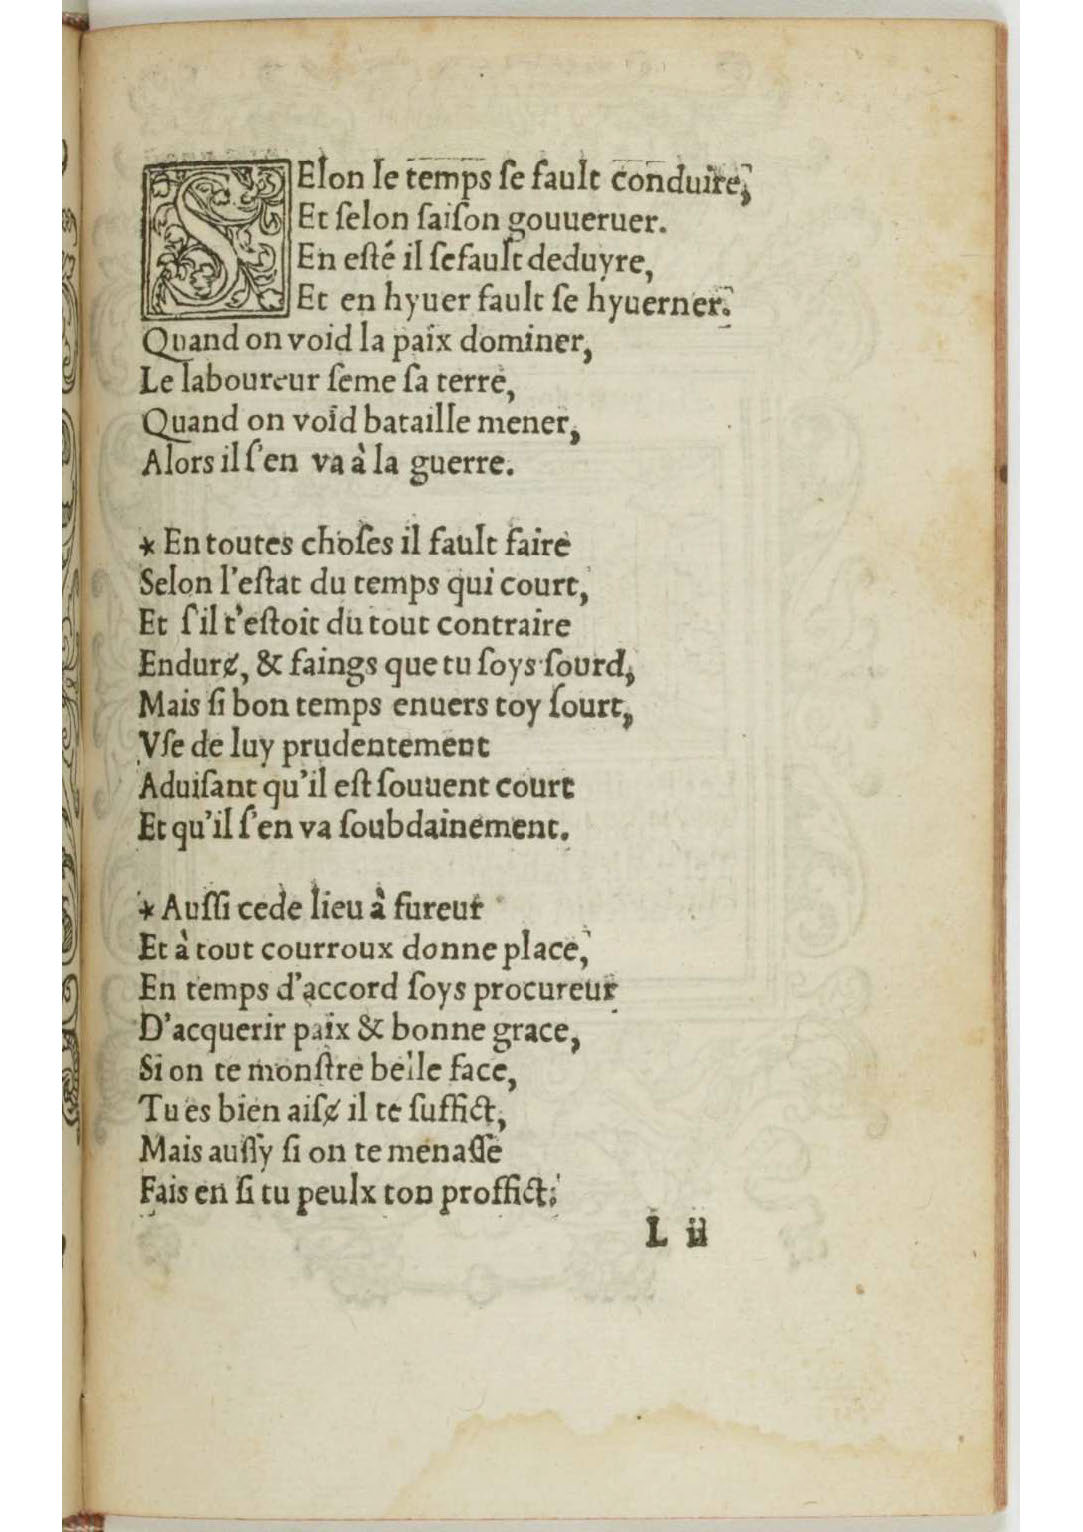 SElon le temps se fault conduire,
Et ſelon ſaiſon gouueruer.
En eſté il ſefault deduyre,
Et en hyuer fault ſe hyuerner.
Quand on void la paix dominer,
Le laboureur ſeme ſa terre,
Quand on void bataille mener,
Alors il ſ'en va à la guerre.
* En toutes choſes il fault faire
Selon l'eſtat du temps qui court,
Et ſ'il t'eſtoit du tout contraire
Endurɇ, & faings que tu ſoys ſourd,
Mais ſi bon temps enuers toy ſourt,
Vſe de luy prudentement
Aduiſant qu'il eſt ſouuent court
Et qu'il ſ'en va ſoubdainement.
* Auſſi cede lieu à fureur
Et à tout courroux donne place,
En temps d'accord ſoys procureur
D'acquerir paix & bonne grace,
Si on te monſtre belle face,
Tu es bien aiſɇ il te ſuffict,
Mais auſſy ſi on te menaſſe
Fais en ſi tu peulx ton proffict.
L ii